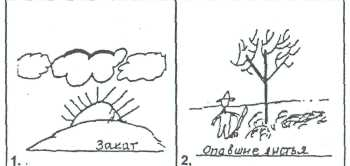 Закат
1.
2. Опавшие листья